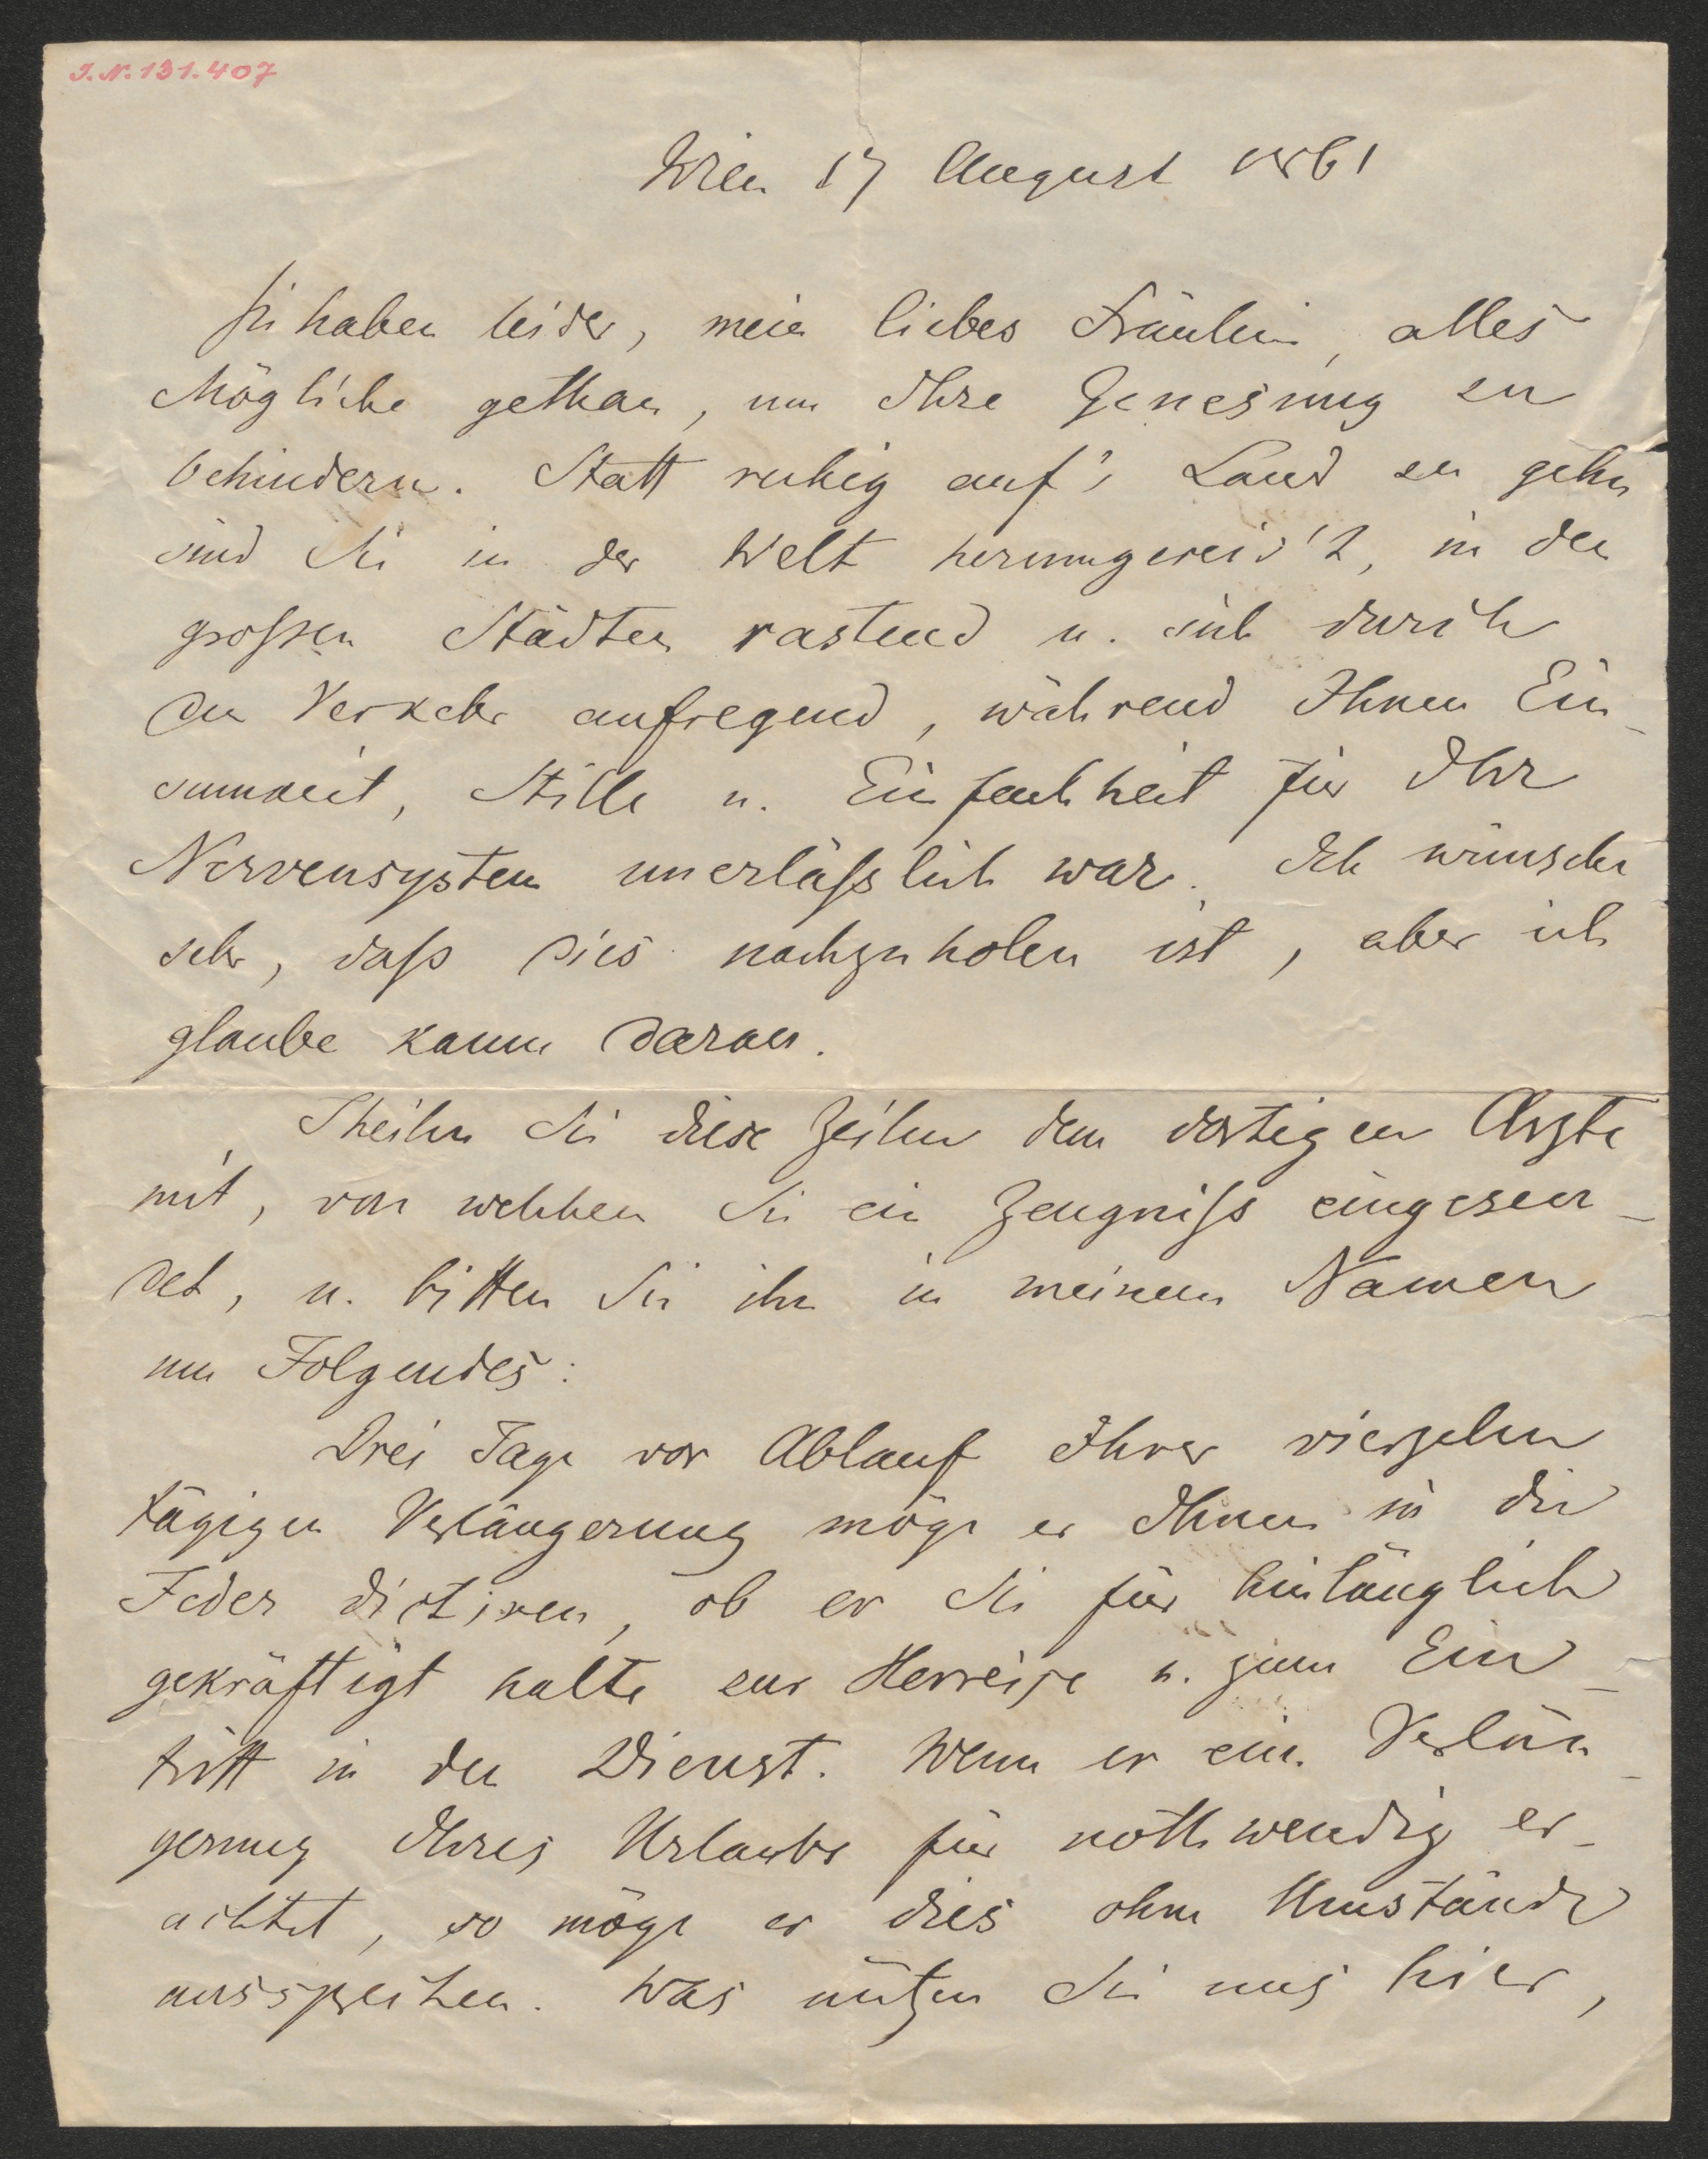 I.N. 131.407
Wien 17 August 1861
Sie haben leider, mein liebes Fräulein, alles
Mögliche gethan, um Ihre Genesung zu
behindern. Statt ruhig auf's Land zu gehn
sind Sie in der Welt herumgereis't, in den
großen Städten rastend u. sich durch
den Verkehr aufregend, während Ihnen Ein-
samkeit, Stille u. Einfachheit für Ihr
Nervensystem unerläßlich war. Ich wünsche
sehr, daß dies nachzuholen ist, aber ich
glaube kaum daran.
Theilen Sie diese Zeilen dem dortigen Arzte
mit, von welchem Sie ein Zeugniß eingesen-
det, u. bitten Sie ihn in meinem Namen
um Folgendes:
Drei Tage vor Ablauf Ihrer vierzehn
tägigen Verlängerung möge er Ihnen in die
Feder dictiren, ob er Sie für hinlänglich
gekräftigt halte zur Herreise u. zum Ein-
tritt in den Dienst. Wenn er eine Verlän-
gerung Ihres Urlaubs für nothwendig er-
achtet, so möge er dies ohne Umstände
aussprechen. Was nützen Sie uns hier,